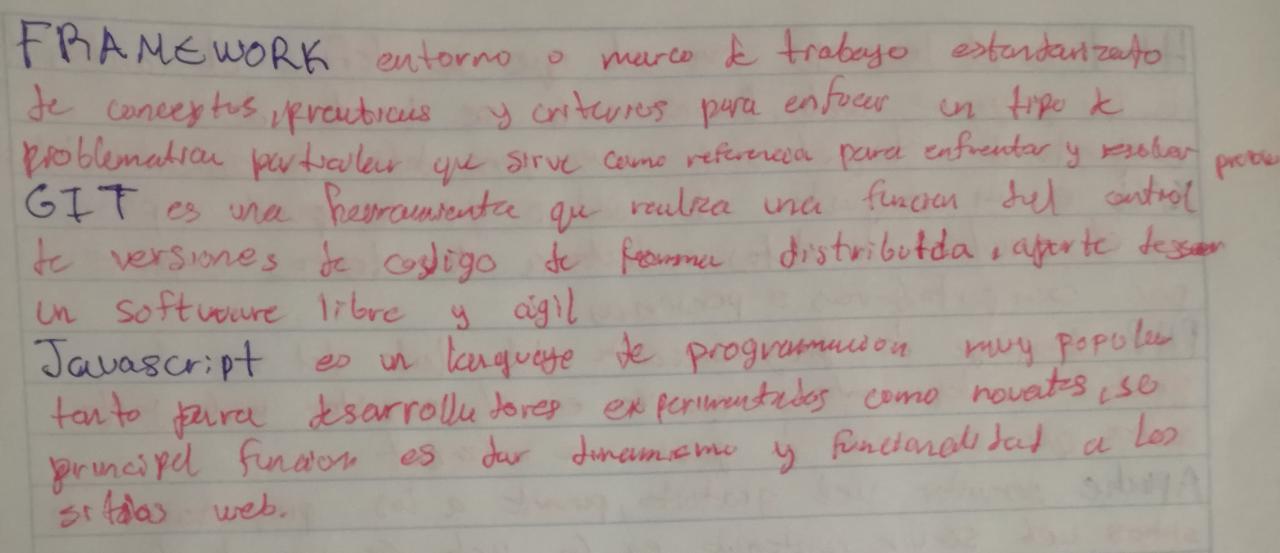 FRAMEWORK entorno o marco de trabajo estandarizado
de conceptos, practicas y criterios para enfocar un tipo de
problematica particular que sirve como referencia para enfrentar y resolver proble
GIT es una herramienta que realiza una funcion del control
de versiones de codigo de forma distribuida, aparte de ser
un software libre y agil
Javascript es un lenguaje de programacion muy popular
tanto para desarrolladores experimentados como novatos, so
principal funcion es dar dinamismo y funcionalidad a los
sitios web.